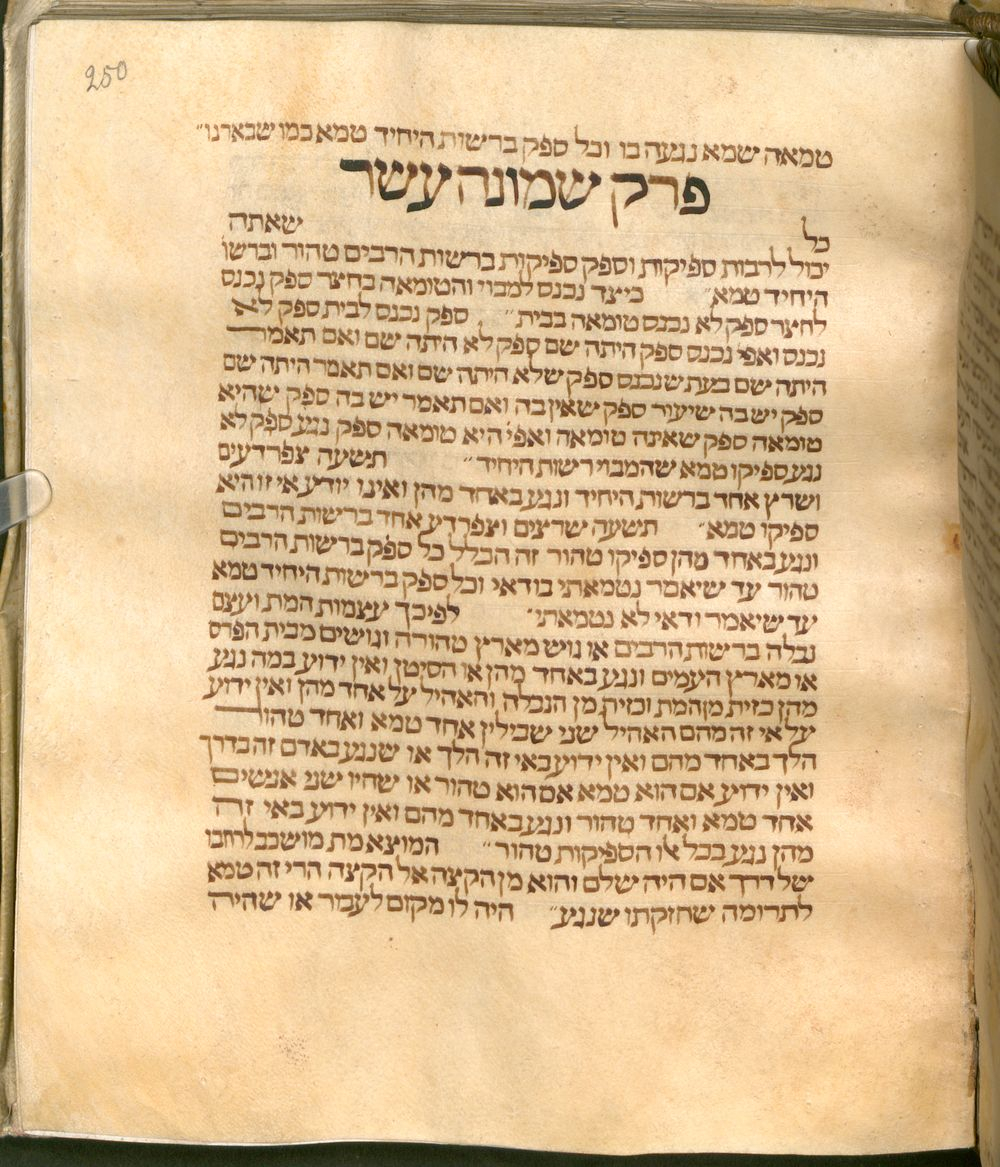 250
טמאה שמא נגעה בו וכל ספק ברשות היחיד טמא כמו שבארנו״
פרק שמונה עשר
כל שאתה
יכול לרבות ספיקות וספק ספיקות ברשות הרבים טהור וברשו
היחיד טמא״ כיצד נכנס למבוי והטומאה בחצר ספק נכנס
לחצר ספק לא נכנס טומאה בבית״ ספק נכנס לבית ספק לא
נכנס ואפי׳ נכנס ספק היתה שם ספק לא היתה שם ואם תאמר
היתה שם בעת שנכנס ספק שלא היתה שם ואם תאמר היתה שם
ספק יש בה שיעור ספק שאין בה ואם תאמר יש בה ספק שהיא
טומאה ספק שאינה טומאה ואפי׳ היא טומאה ספק נגע ספק לא
נגע ספיקו טמא שהמבוי רשות היחיד״ תשעה צפרדעים
ושרץ אחד ברשות היחיד ונגע באחד מהן ואינו יודע אי זו היא
ספיקו טמא״ תשעה שרצים וצפרדע אחד ברשות הרבים
ונגע באחד מהן ספיקו טהור זה הכלל כל ספק ברשות הרבים
טהור עד שיאמר נטמאתי בודאי וכל ספק ברשות היחיד טמא
עד שיאמר ודאי לא נטמאתי״ לפיכך עצמות המת ועצם
נבלה ברשות הרבים או גוש מארץ טהורה וגושים מבית הפרס
או מארץ העמים ונגע באחד מהן או הסיטן ואין ידוע במה נגע
מהן כזית מן המת וכזית מן הנבלה והאהיל על אחד מהן ואין ידוע
על אי זה מהם האהיל שני שבילין אחד טמא ואחד טהור
הלך באחד מהם ואין ידוע באי זה הלך או שנגע באדם זה בדרך
ואין ידוע אם הוא טמא אם הוא טהור או שהיו שני אנשים
אחד טמא ואחד טהור ונגע באחד מהם ואין ידוע באי זה
מהן נגע בכל או הספיקות טהור״ המוצא מת מושכב לרחבו
של דרך אם היה שלם והוא מן הקצה אל הקצה הרי זה טמא
לתרומה שחזקתו שנגע״ היה לו מקום לעבור או שהיה